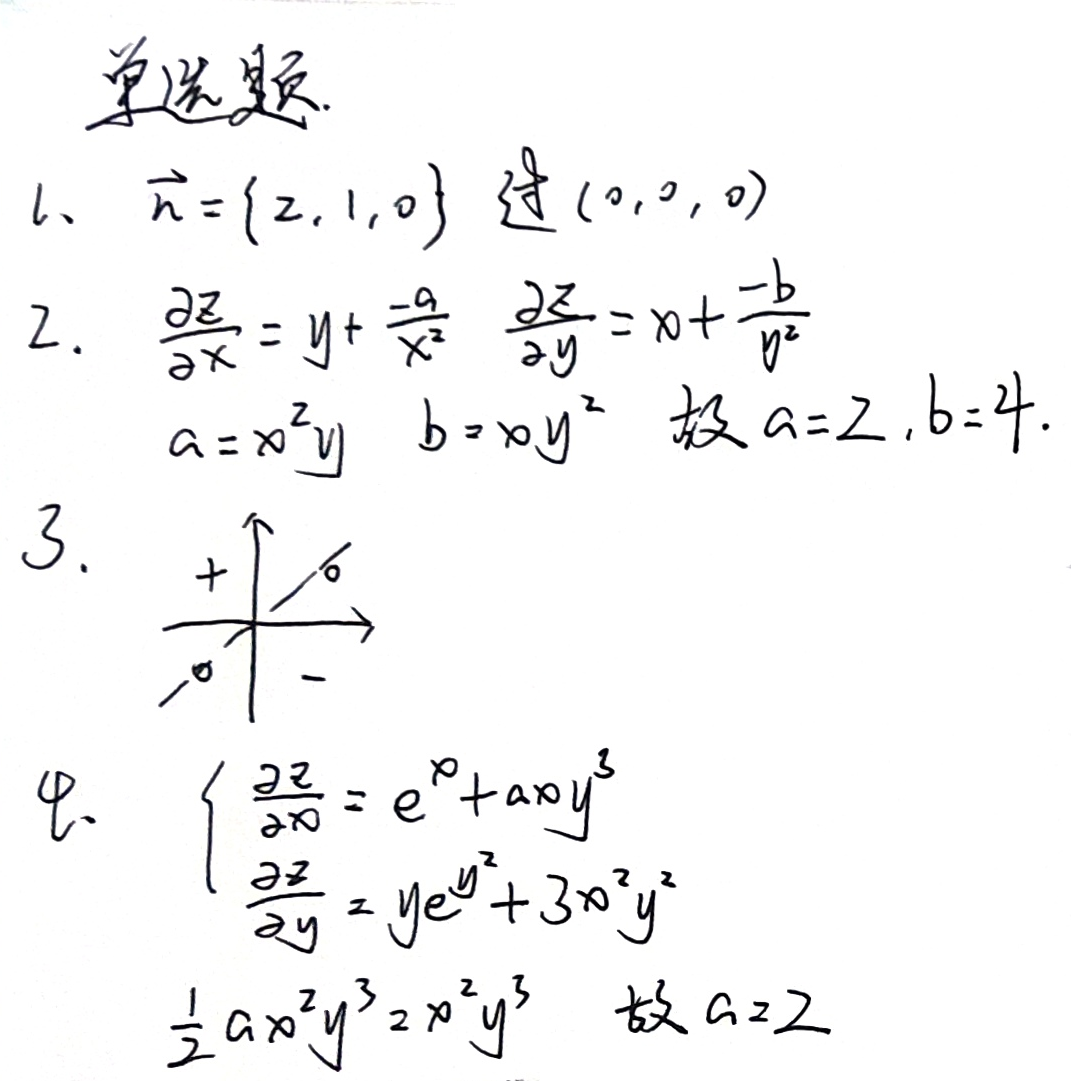 单选题.
1、 n⃗={2,1,0} 过(0,0,0)
2. ∂z/∂x = y + -a/x² ∂z/∂y = x + -b/y²
a=x²y b=xy² 故 a=2,b=4.
3.
+ 0
0 -
4. { ∂z/∂x = eˣ+axy³
∂z/∂y = ye^{y²}+3x²y²
1/2 ax²y³=x²y³ 故 a=2